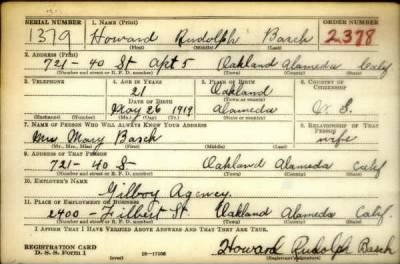 SERIAL NUMBER 1. NAME (Print) ORDER NUMBER
1379 Howard Rudolph Basch 2378
(First) (Middle) (Last)
2. ADDRESS (Print)
721-40 St Apt 5 Oakland Alameda Calif
(Number and street or R. F. D. number) (Town) (County) (State)
3. TELEPHONE 4. AGE IN YEARS 5. PLACE OF BIRTH 6. COUNTRY OF CITIZENSHIP
21 Oakland
(Town or county)
DATE OF BIRTH
May 26 1919 Alameda U. S.
(Exchange) (Number) (Mo.) (Day) (Yr.) (State or country)
7. NAME OF PERSON WHO WILL ALWAYS KNOW YOUR ADDRESS 8. RELATIONSHIP OF THAT PERSON
Mrs Mary Basch wife
(Mr., Mrs., Miss) (First) (Middle) (Last)
9. ADDRESS OF THAT PERSON
721-40 St Oakland Alameda Calif
(Number and street or R. F. D. number) (Town) (County) (State)
10. EMPLOYER'S NAME
Gilboy Agency
11. PLACE OF EMPLOYMENT OR BUSINESS
2400-Filbert St. Oakland Alameda Calif.
(Number and street or R. F. D. number) (Town) (County) (State)
I AFFIRM THAT I HAVE VERIFIED ABOVE ANSWERS AND THAT THEY ARE TRUE.
REGISTRATION CARD
D. S. S. Form 1 (over) Howard Rudolph Basch
(Registrant's signature)